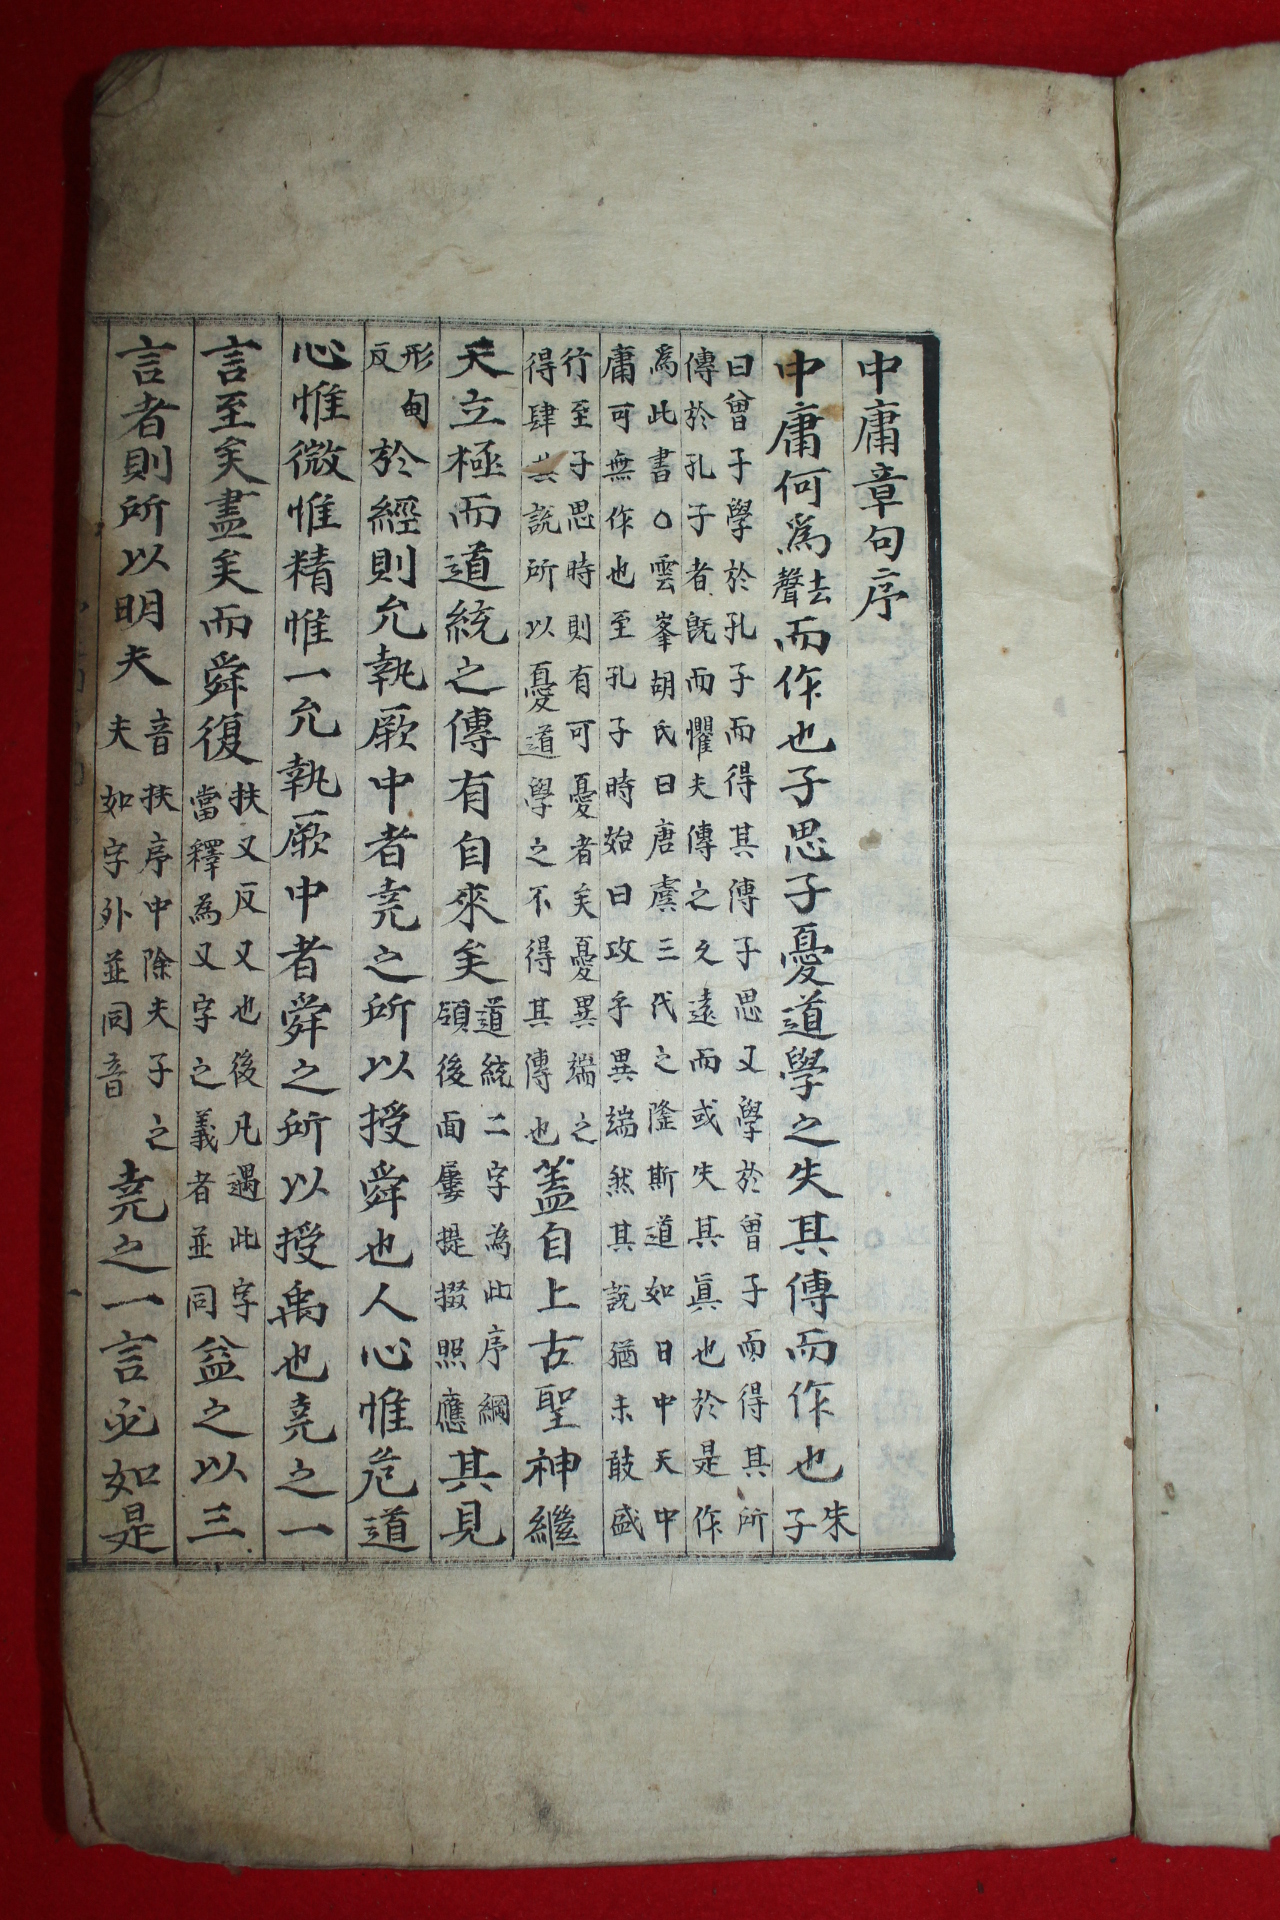 中庸章句序
中庸何爲去聲而作也子思子憂道學之失其傳而作也朱子
曰曾子學於孔子而得其傳子思又學於曾子而得其所
傳於孔子者旣而懼夫傳之久遠而或失其眞也於是作
爲此書○雲峯胡氏曰唐虞三代之隆斯道如日中天中
庸可無作也至孔子時始曰攻乎異端然其說猶未敢盛
行至子思時則有可憂者矣憂異端之
得肆其說所以憂道學之不得其傳也
盖自上古聖神繼
天立極而道統之傳有自來矣
道統二字為此序綱
領後面屢提掇照應
其見
形甸
反
於經則允執厥中者堯之所以授舜也人心惟危道
心惟微惟精惟一允執厥中者舜之所以授禹也堯之一
言至矣盡矣而舜復
扶又反又也後凡遇此字
當釋為又字之義者並同
益之以三
言者則所以明夫
音扶序中除夫子之
夫如字外並同音
堯之一言必如是